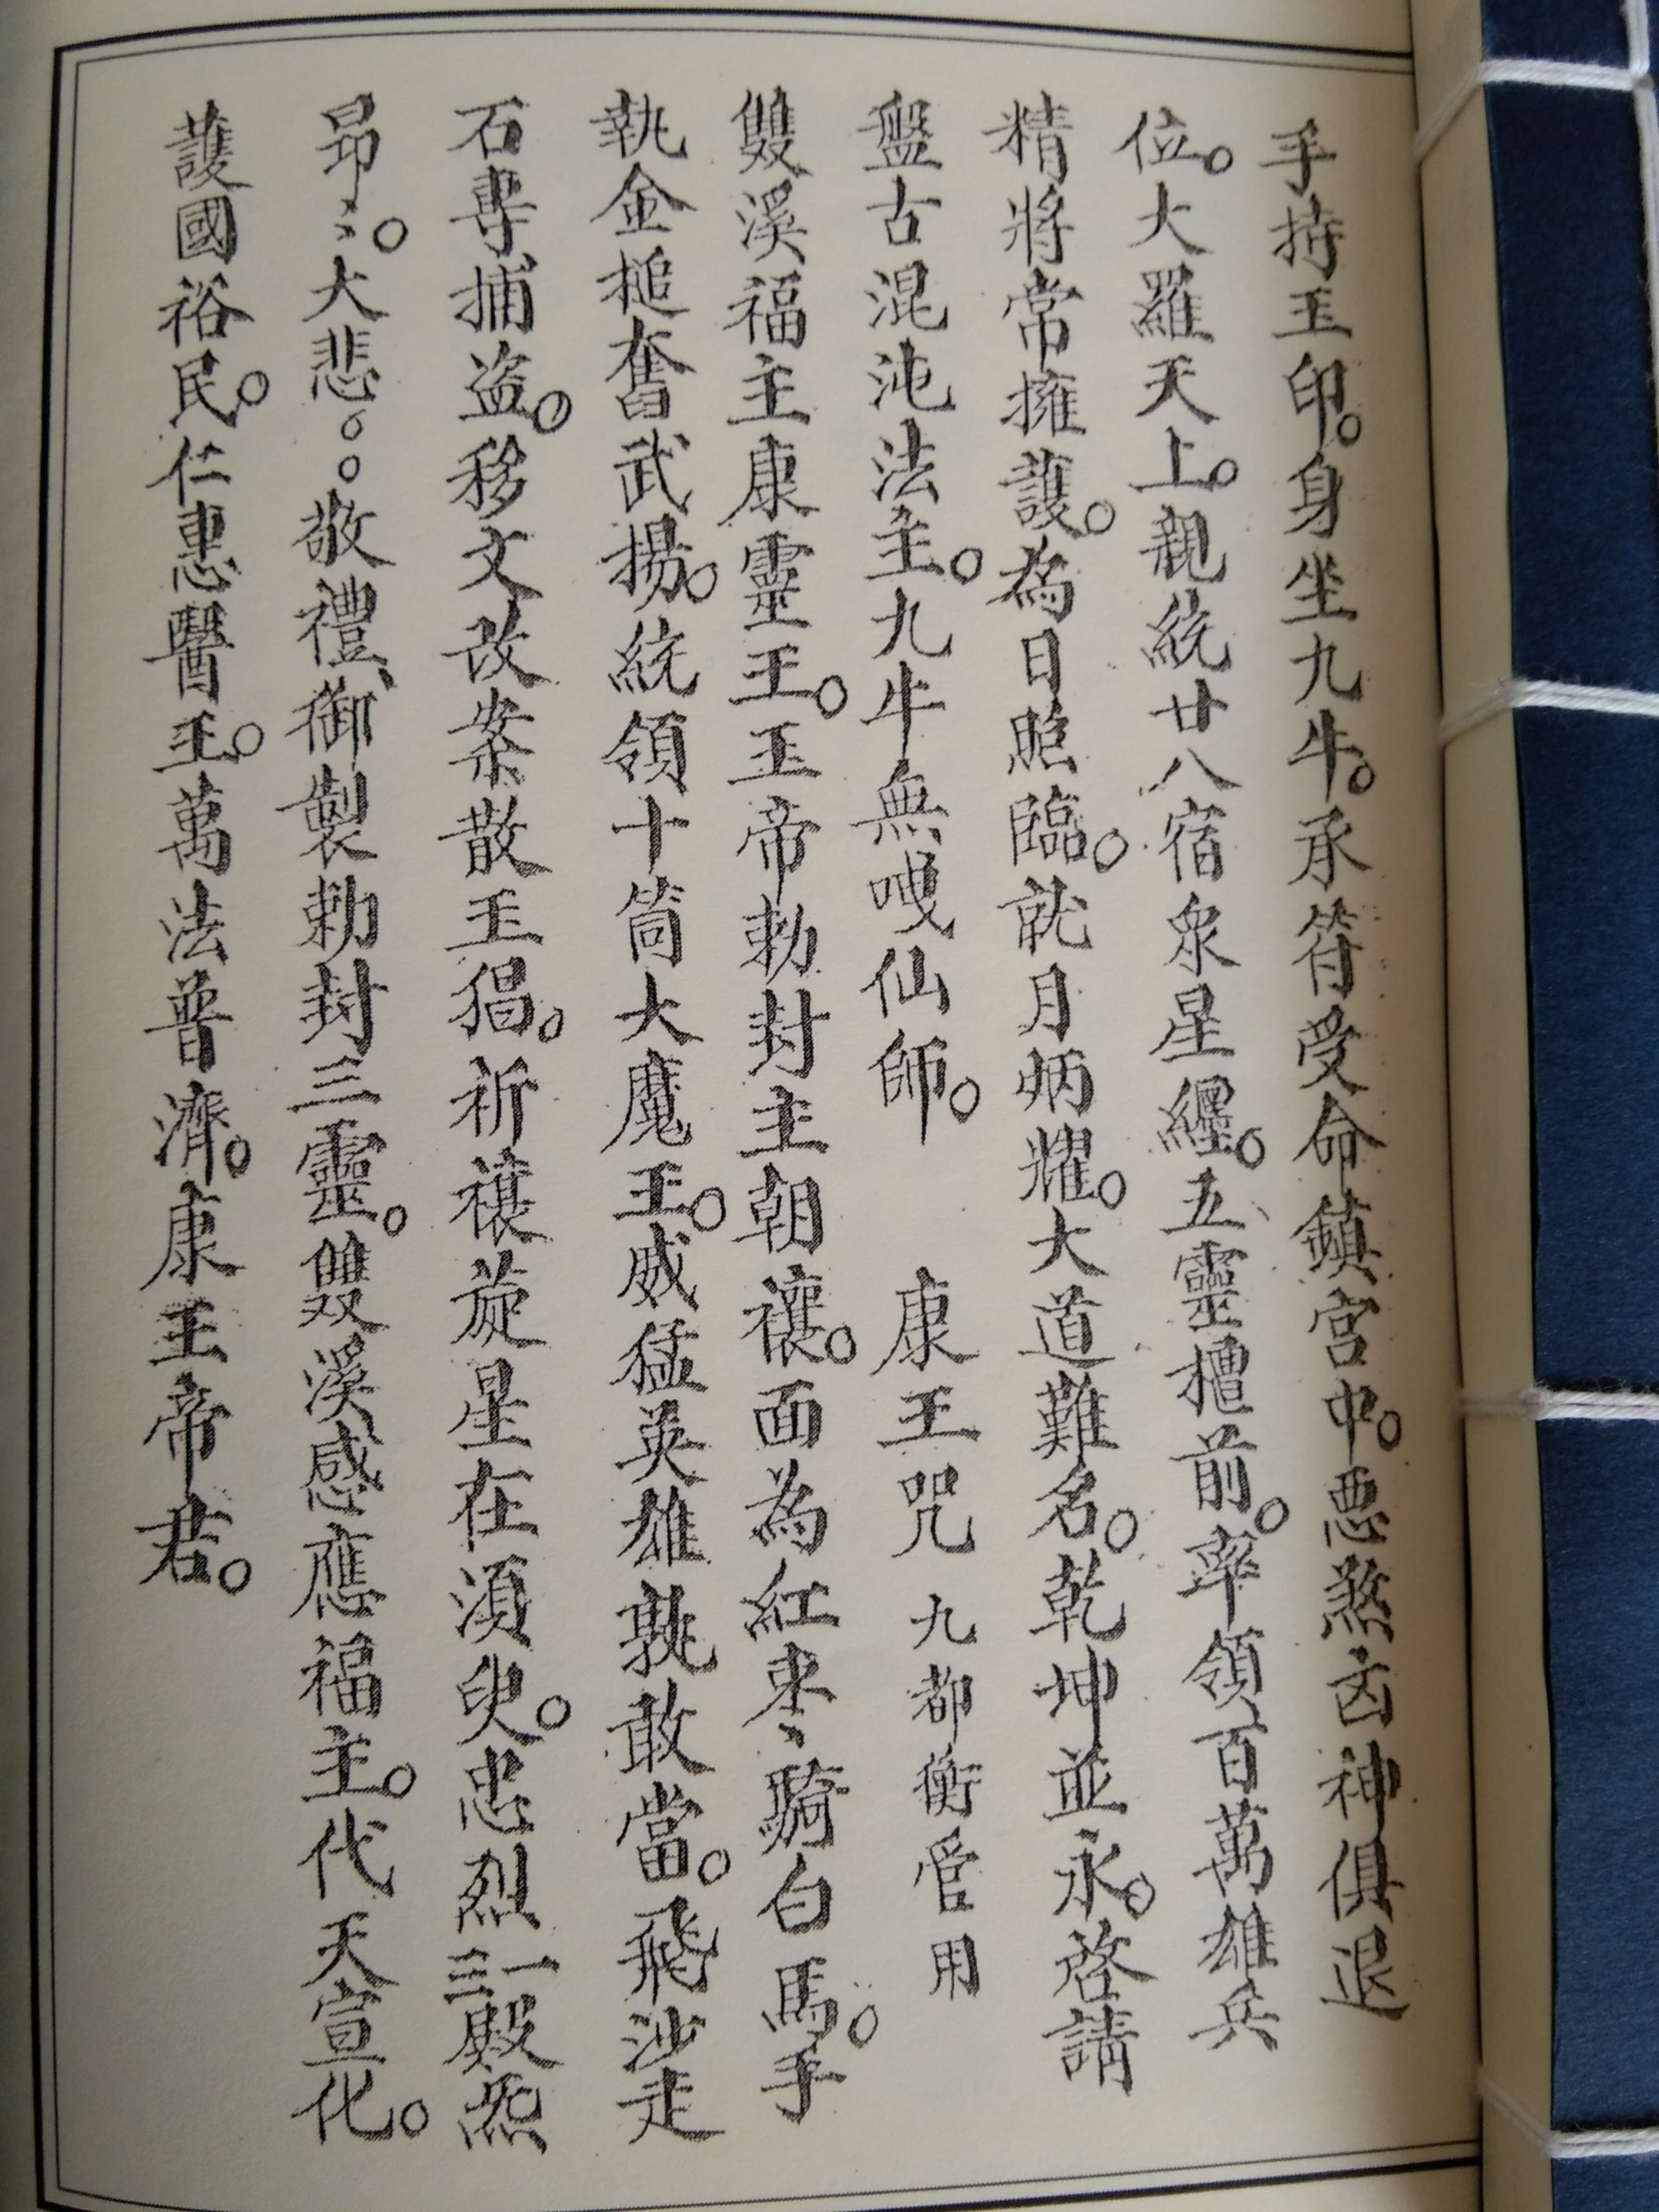 手持玉印。身坐九牛。承符受命鎮宮中。惡煞凶神俱退
位。大羅天上。親統廿八宿衆星纏。五靈擅前。率領百萬雄兵
精將常擁護。為日照臨。就月炳耀。大道難名。乾坤並永。啓請
盤古混沌法主。九牛無嗖仙師。 康王咒 九都衡管用
雙溪福主康靈王。玉帝勅封主朝禳。面為紅枣騎白馬。手
執金搥奮武揚。統領十筒大魔王。威猛英雄孰敢當。飛沙走
石專捕盗。移文改案散王猖。祈禳旋星在須臾。忠烈三一殿炁
昻〻。大悲。。敬禮、御製勅封三靈。雙溪感應福主。代天宣化。
護國裕民。仁惠醫王。萬法普濟。康王帝君。